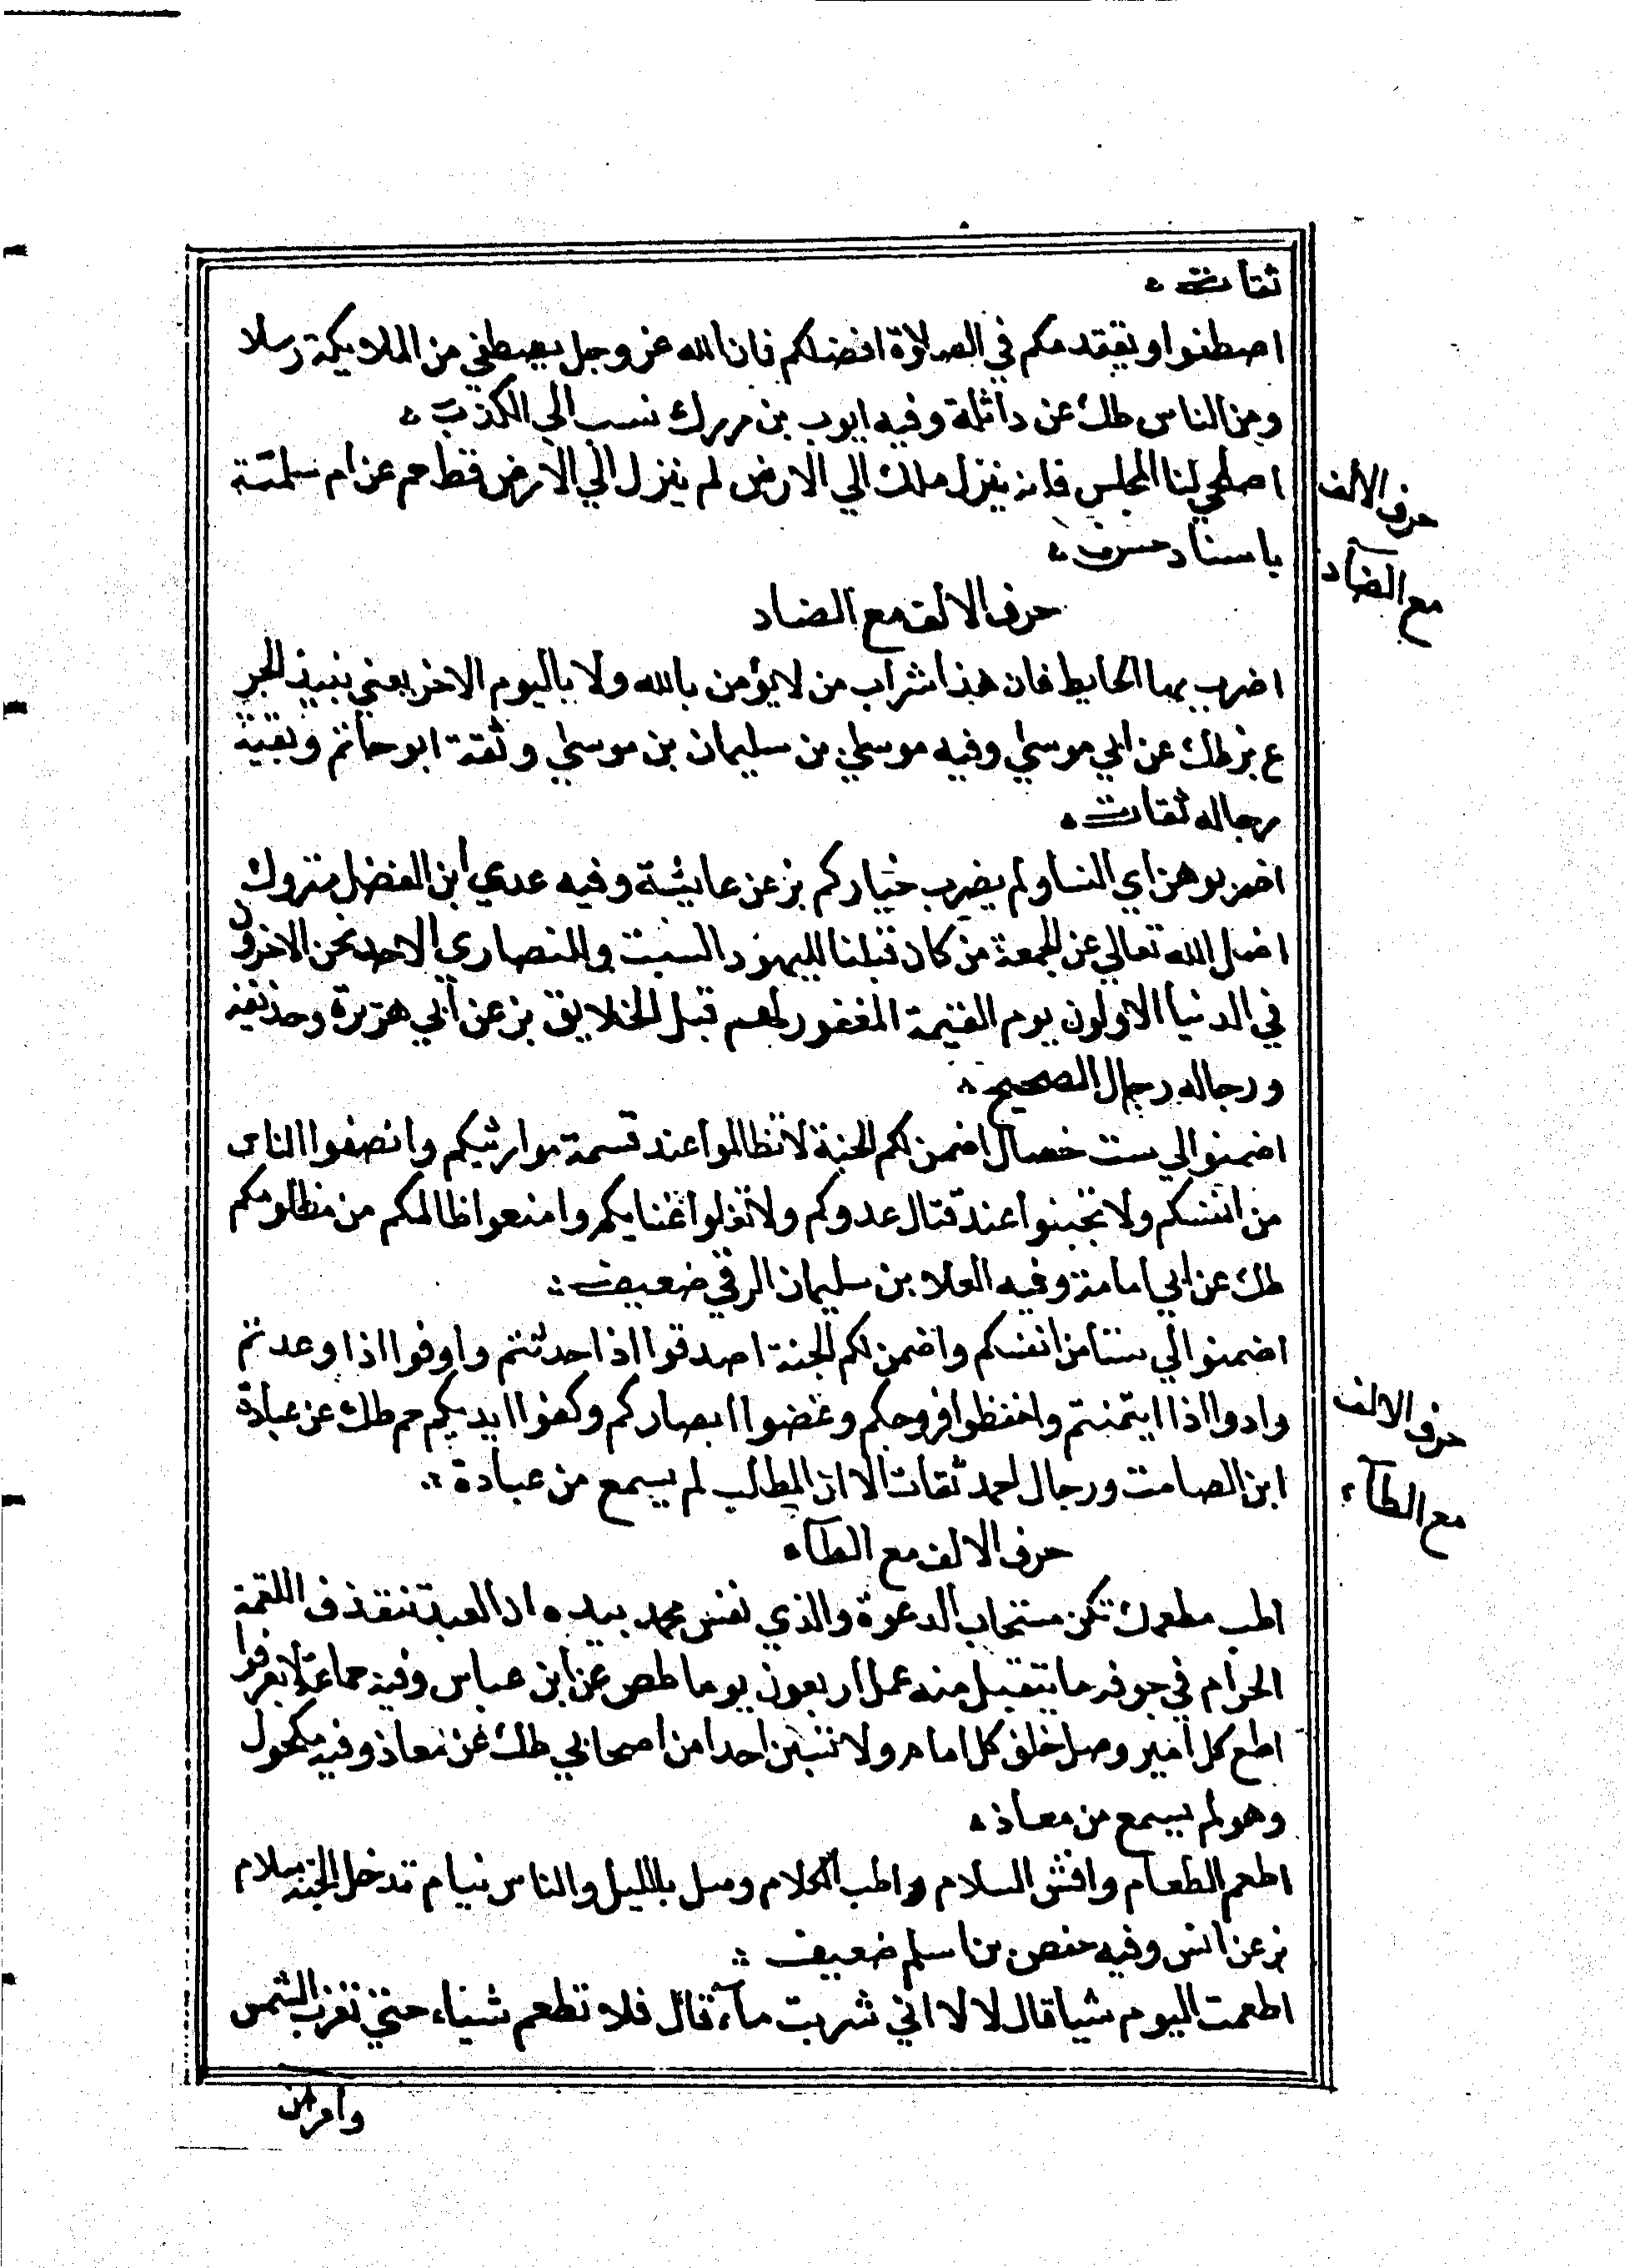 ثقات
اصطفوا ويتقدمكم في الصلاة افضلكم فان الله عز وجل يصطفي من الملايكة رسلا
ومن الناس طك عن واثلة وفيه ايوب بن مدرك نسب الي الكذب
اصلحي لنا المجلس فانه ينزل ملك الي الارض لم ينزل الي الارض قط حم عن ام سلمة
باسناد حسن
حرف الالف مع الضاد
اضرب بهذا الحايط فان هذا شراب من لا يؤمن بالله ولا باليوم الاخر يعني نبيذ الجر
ع بز طك عن ابي موسي وفيه موسي بن سليمان بن موسي وثقة ابو حاتم وبقية
رجاله ثقات
اضربوهن اي النسا ولم يضرب خياركم بز عن عايشة وفيه عدي ابن الفضل متروك
اضل الله تعالي عن الجمعة من كان قبلنا لليهود السبت وللنصاري الاحد نحن الاخرون
في الدنيا الاولون يوم القيمة المغفور لهم قبل الخلايق بز عن ابي هريرة وحذيفه
ورجاله رجال الصحيح
اضمنوا لي ست خصال اضمن لكم الجنة لا تظالموا عند قسمة مواريثكم وانصفوا الناس
من انفسكم ولا تجبنوا عند قتال عدوكم ولا تغلوا غنايمكم وامنعوا ظالمكم من مظلومكم
طك عن ابي امامة وفيه العلا بن سليمان الرقي ضعيف
اضمنوا لي ستا من انفسكم واضمن لكم الجنة اصدقوا اذا حدثتم واوفوا اذا وعدتم
وادوا اذا ايتمنتم واحفظوا فروجكم وغضوا ابصاركم وكفوا ايديكم حم طك عن عبادة
ابن الصامت ورجال احمد ثقات الا ان المطلب لم يسمع من عبادة
حرف الالف مع الطاء
اطب مطعمك تكن مستجاب الدعوة والذي نفس محمد بيده ان العبد يقذف اللقمة
الحرام في جوفه ما يتقبل منه عمل اربعون يوما طص عن ابن عباس وفيه جماعة لا يعرفوا
اطع كل امير وصل خلف كل امام ولا تسبن احدا من اصحابي طك عن معاذ وفيه مكحول
وهو لم يسمع من معاذ
اطعم الطعام وافش السلام واطب الكلام وصل بالليل والناس نيام تدخل الجنة بسلام
بز عن انس وفيه حفص بن اسلم ضعيف
اطعمت اليوم شيا قال لا لا اني شربت ماء قال فلا تطعم شياء حتي تغرب الشمس
وامر من
حرف الالف
مع الضاد
حرف الالف
مع الطاء